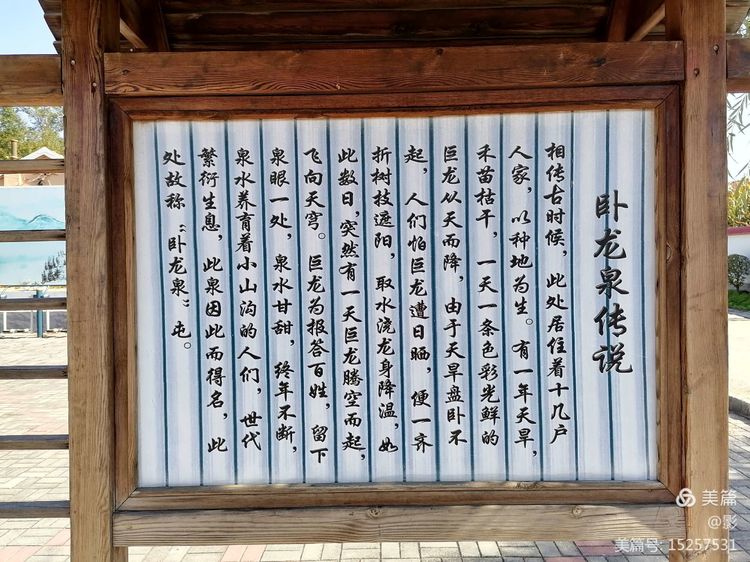 卧龙泉传说
相传古时候，此处居住着十几户
人家，以种地为生。有一年天旱，
禾苗枯干，一天一条色彩光鲜的
巨龙从天而降，由于天旱盘卧不
起，人们怕巨龙遭日晒，便一齐
折树枝遮阳，取水浇龙身降温，如
此数日，突然有一天巨龙腾空而起，
飞向天穹。巨龙为报答百姓，留下
泉眼一处，泉水甘甜，终年不断，
泉水养育着小山沟的人们，世代
繁衍生息，此泉因此而得名，此
处故称“卧龙泉”屯。
美篇
@影
美篇号: 15257531